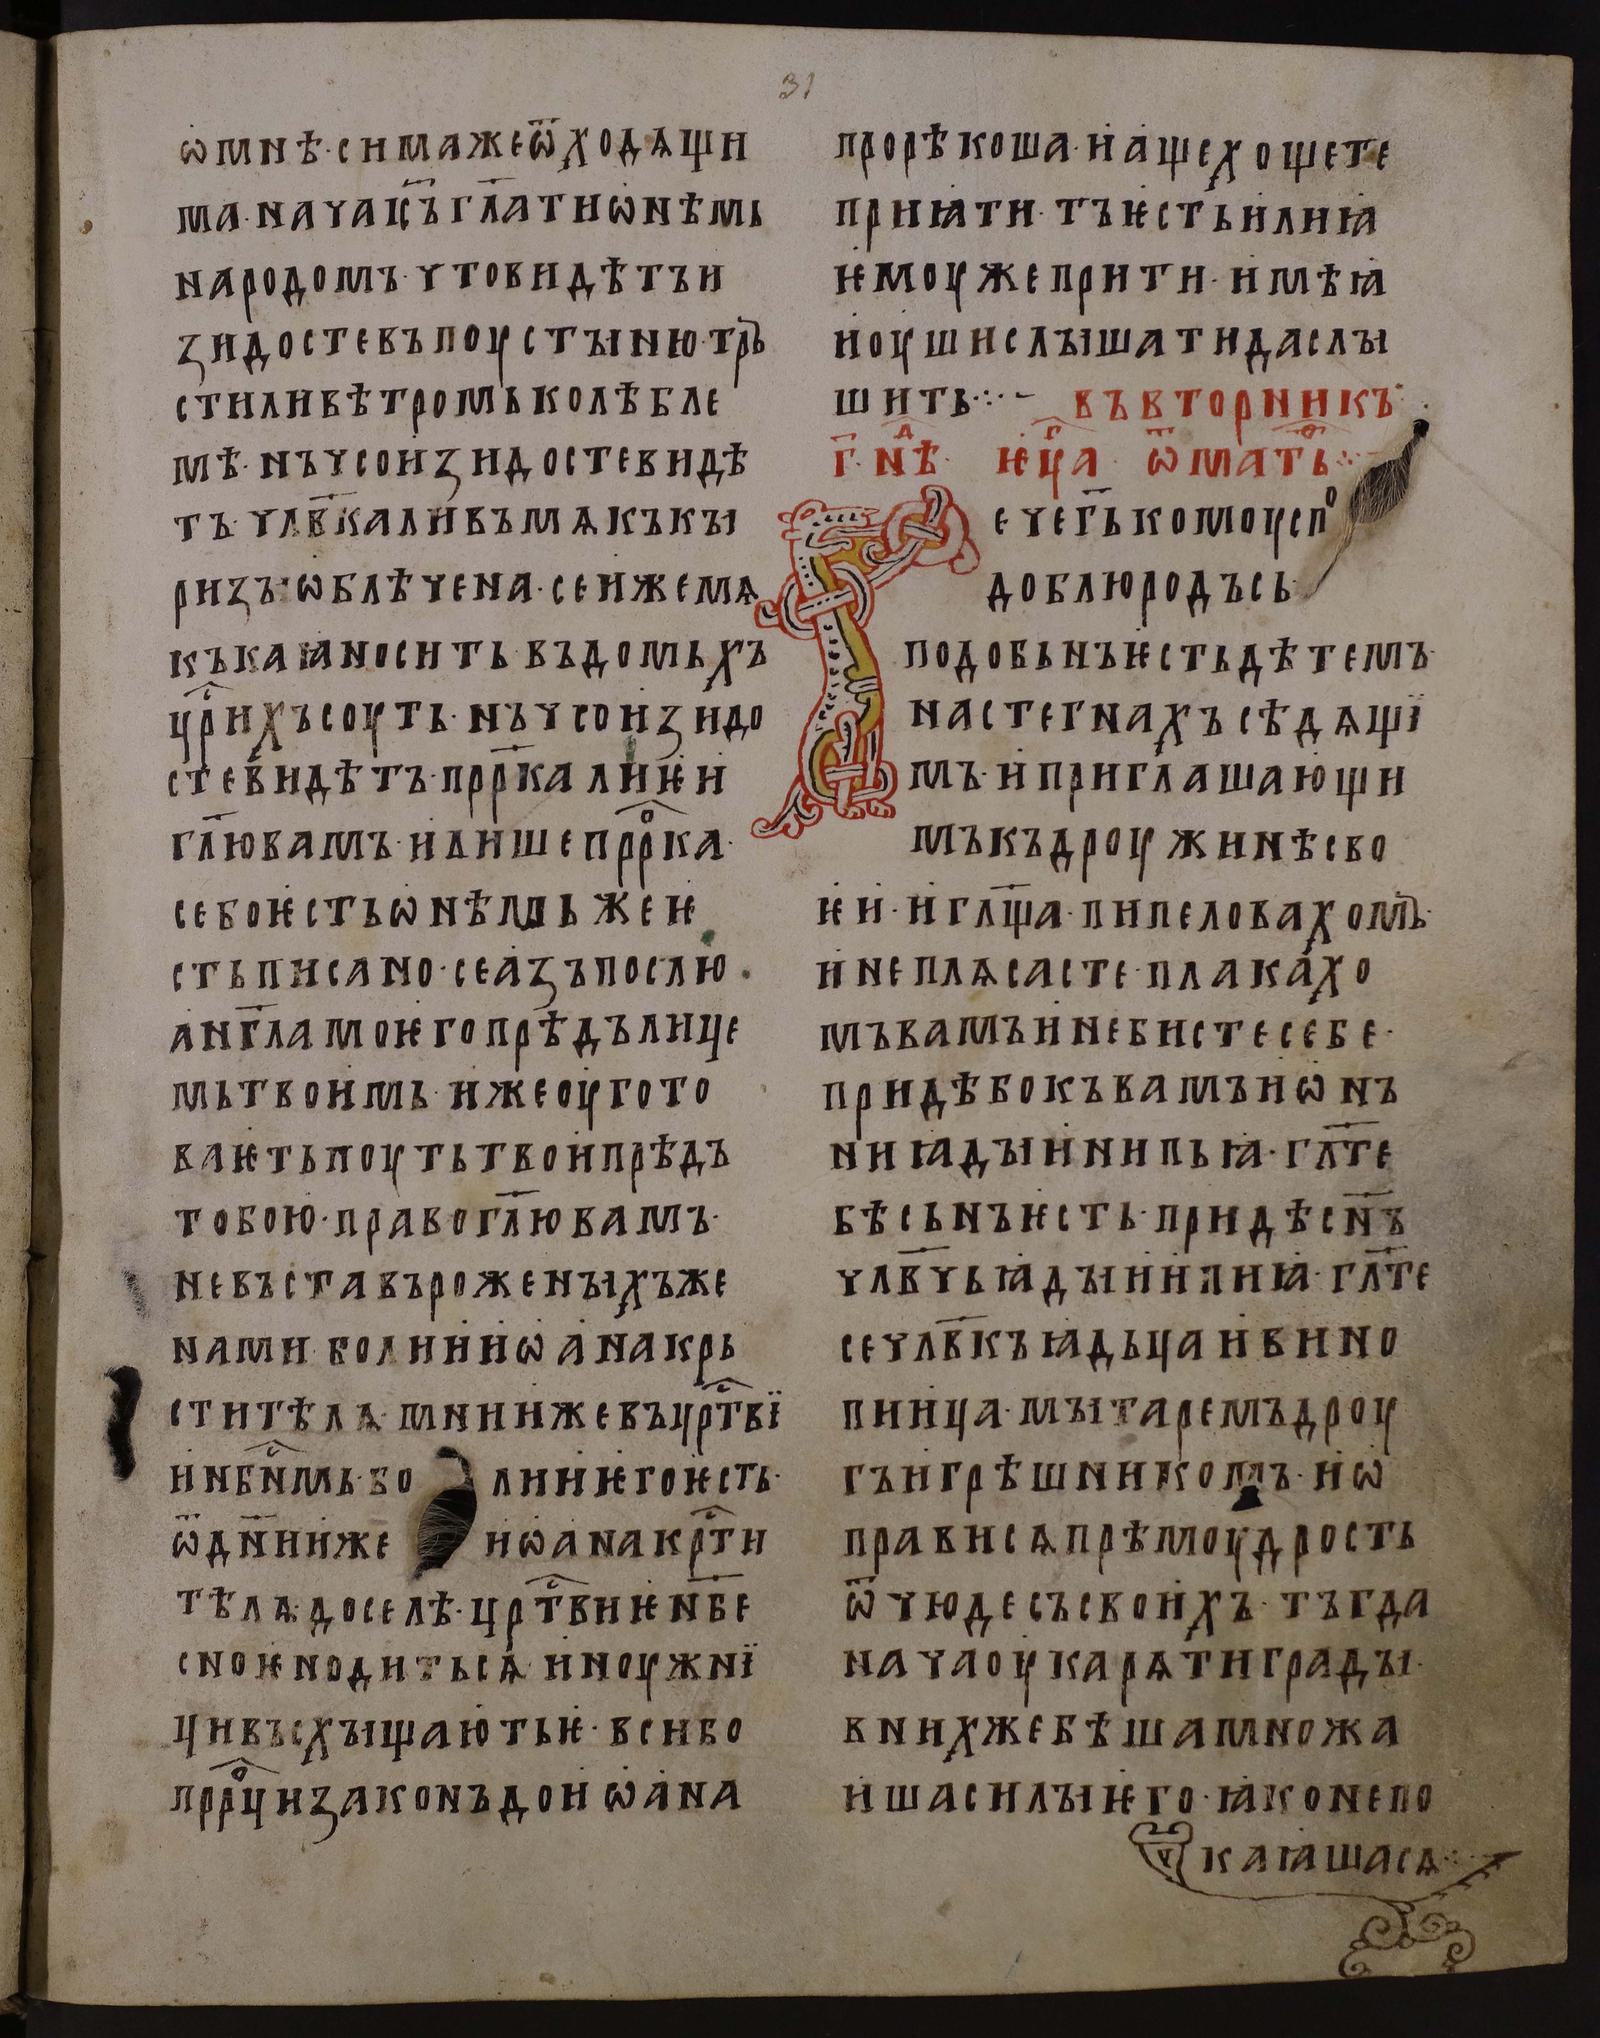 31
ѡмнѣ·симажеѿходѧщи
ма·начаꙇс҃ъгл҃атиѡнѣмь
народомъ·чтовидѣтъи
ꙁидостевъпоустыню·трь
стиливѣтромьколѣбле
мѣ·нъчсоиꙁидостевидѣ
тъ·члв҃каливъмѧкъкы
риꙁъ·ѡблѣчена·сеижемѧ
къкаꙗноситьвъдомьхъ
цр҃ихъсоуть·нъчсоиꙁидо
стевидѣтъ·прр҃калиѥи
гл҃ювамъ·илишепррⷪ҇ка
себоѥстьѡнѣмьжеѥ
стьписано·сеаꙁъпослю
анг҃ламоѥгопрѣдълице
мьтвоимь·ижеоугото
ваѥтьпоутьтвоипрѣдъ
тобою·правогл҃ювамъ·
невъставъроженыхъже
нами·болииѡанакрь
стителѧ·мнииживъцр҃тві
инбс҃мь·бо лииѥгоѥсть·
ѿдн҃ииже иѡанакрⷭ҇ти
тѣлѧ·доселѣ·црⷭ҇твиѥнб҃е
сноѥноудитьсѧ·иноужні
цивъсхыщаютьѥ·всибо
пррⷪ҇циꙁаконъдоиѡана
прорѣкоша·иащехощете
приꙗти·тъѥстьилиꙗ
ѥмоужеприти·имѣꙗ
иоушислышатидаслы
шить჻- въвторникъ
г҃·нⷣѣ· ѥⷢ҇ца· ѿмаⷴ҇ть჻
ечег҃ькомоуспⷪ҇
доблюродъсь
подобьнъѥстьдѣтемъ
настегнахъсѣдѧщї
мъ·иприглашающи
мъкъдроужинѣсво
ѥи·игл҃ща·пипеловахомъ·
инеплѧсасте·плакахо
мъвамъинебистесебе·
придѣбокъвамъиѡнъ
ниꙗдыинипьꙗ·гл҃те
бѣсьнъѥсть·придѣсн҃ъ
члв҃чьꙗдыинпиꙗ·гл҃те
сечлв҃къꙗдьцаивино
пиица·мытаремъдроу
гъигрѣшникомъ·иѡ
прависѧпрѣмоудрость
ѿчюдесъсвоихъ·тъгда
начаоукарѧтиграды·
внихжебѣшамножа
ишасилыѥго·ꙗконепо
каꙗшасѧ჻